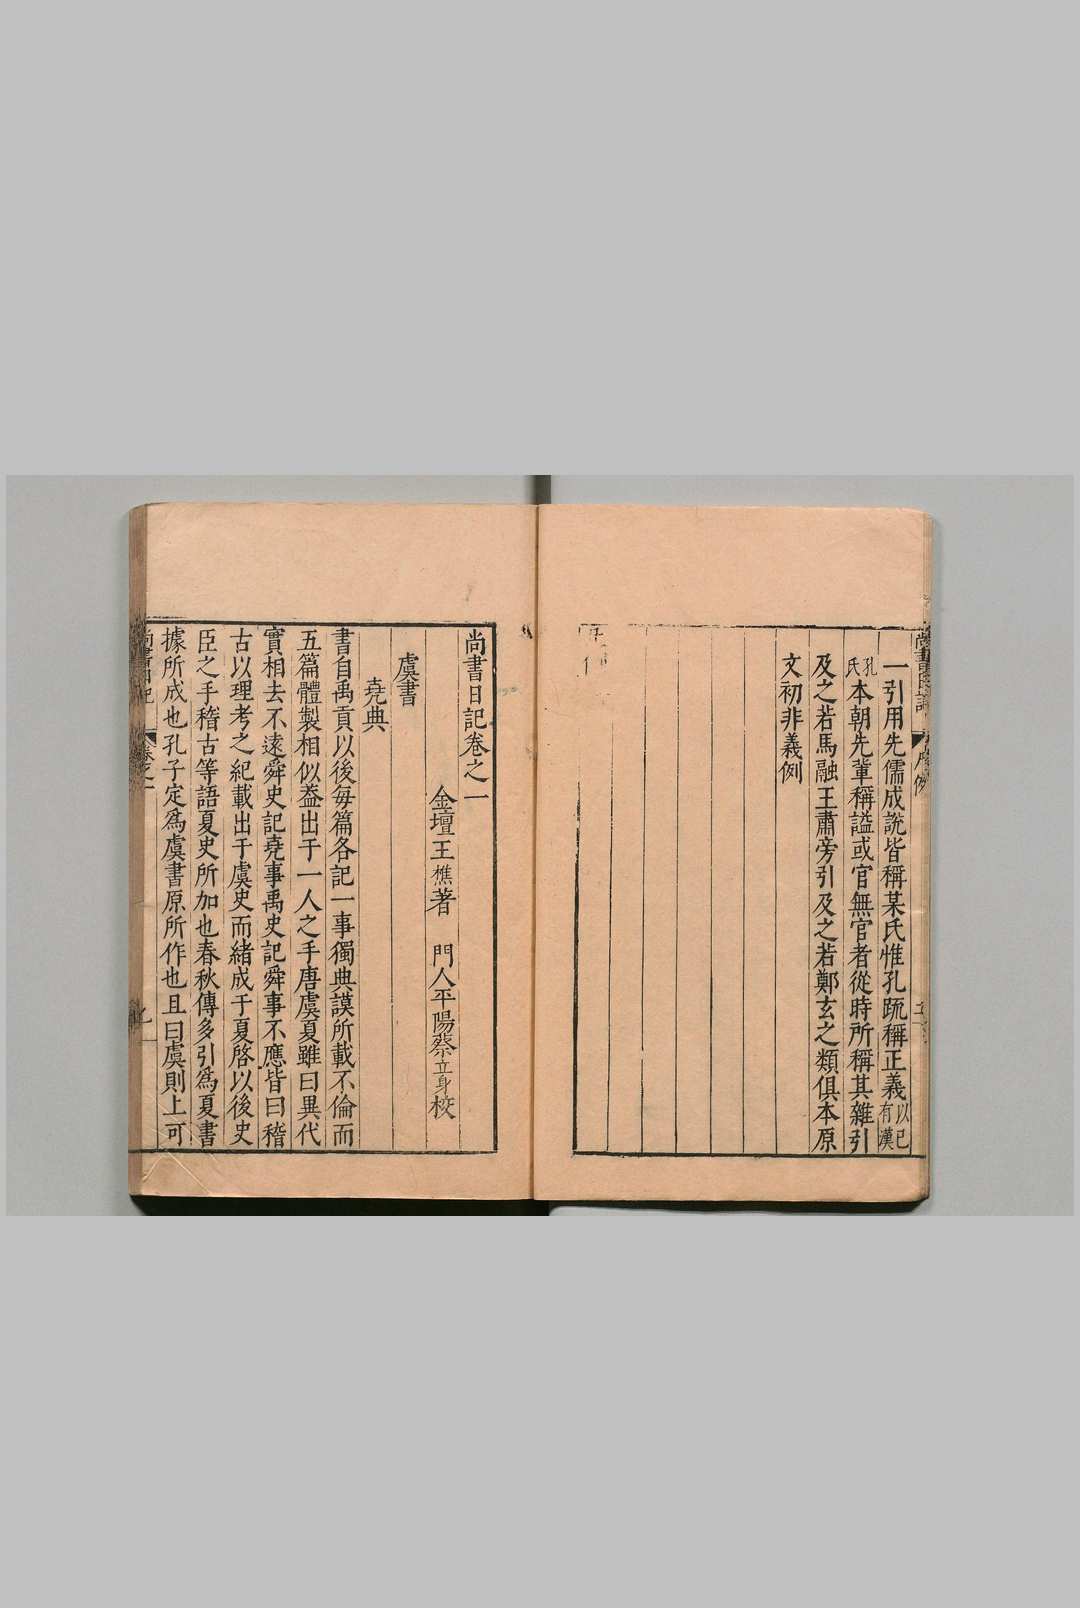 一引用先儒成說皆稱某氏惟孔疏稱正義以有已漢
孔氏本朝先輩稱謚或官無官者從時所稱其雜引
及之若馬融王肅旁引及之若鄭玄之類俱本原
文初非義例
尚書日記卷之一
金壇王樵著 門人平陽蔡立身校
虞書
堯典
書自禹貢以後每篇各記一事獨典謨所載不倫而
五篇體製相似葢出于一人之手唐虞夏雖曰異代
實相去不遠舜史記堯事禹史記舜事不應皆曰稽
古以理考之紀載出于虞史而緒成于夏啓以後史
臣之手稽古等語夏史所加也春秋傳多引爲夏書
據所成也孔子定爲虞書原所作也且曰虞則上可
尚書日記
卷之一